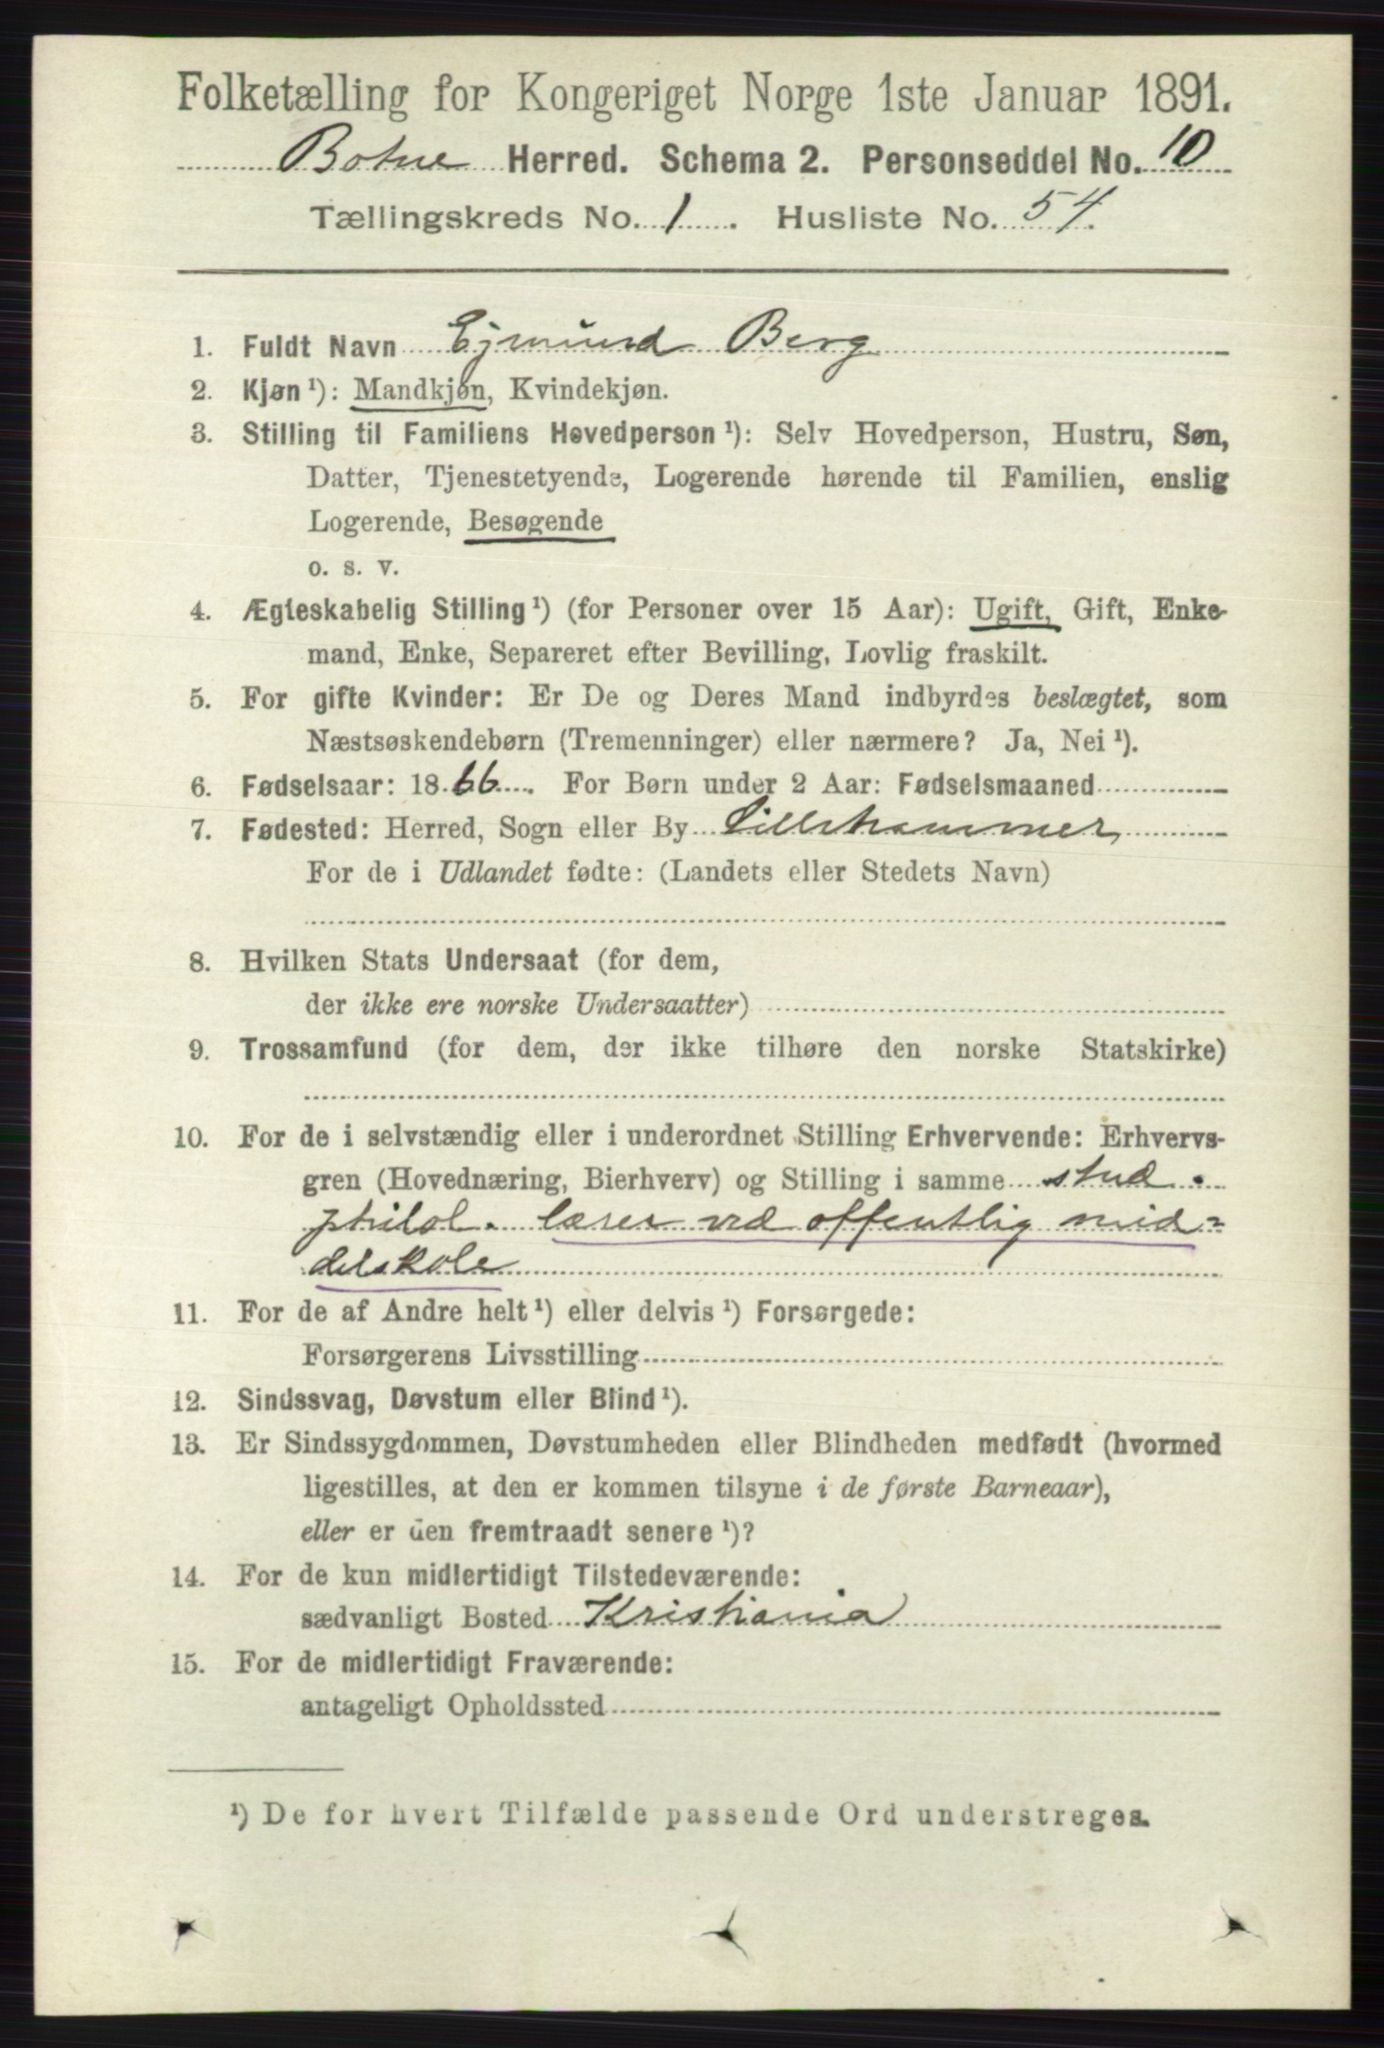 Folketælling for Kongeriget Norge 1ste Januar 1891.
Botne Herred. Schema 2. Personseddel No. 10
Tællingskreds No. 1. Husliste No. 54.
1. Fuldt Navn Ejmund Berg
2. Kjøn ¹): Mandkjøn, Kvindekjøn.
3. Stilling til Familiens Hovedperson ¹): Selv Hovedperson, Hustru, Søn,
Datter, Tjenestetyende, Logerende hørende til Familien, enslig
Logerende, Besøgende
o. s. v.
4. Ægteskabelig Stilling ¹) (for Personer over 15 Aar): Ugift, Gift, Enke-
mand, Enke, Separeret efter Bevilling, Lovlig fraskilt.
5. For gifte Kvinder: Er De og Deres Mand indbyrdes beslægtet, som
Næstsøskendebørn (Tremenninger) eller nærmere? Ja, Nei ¹).
6. Fødselsaar: 1866. For Børn under 2 Aar: Fødselsmaaned
7. Fødested: Herred, Sogn eller By Lillehammer
For de i Udlandet fødte: (Landets eller Stedets Navn)
8. Hvilken Stats Undersaat (for dem,
der ikke ere norske Undersaatter)
9. Trossamfund (for dem, der ikke tilhøre den norske Statskirke)
10. For de i selvstændig eller i underordnet Stilling Erhvervende: Erhvervs-
gren (Hovednæring, Bierhverv) og Stilling i samme stud.
philol. lærer ved offentlig mid-
delskole
11. For de af Andre helt ¹) eller delvis ¹) Forsørgede:
Forsørgerens Livsstilling
12. Sindssvag, Døvstum eller Blind ¹).
13. Er Sindssygdommen, Døvstumheden eller Blindheden medfødt (hvormed
ligestilles, at den er kommen tilsyne i de første Barneaar),
eller er den fremtraadt senere ¹)?
14. For de kun midlertidigt Tilstedeværende:
sædvanligt Bosted Kristiania
15. For de midlertidigt Fraværende:
antageligt Opholdssted
¹) De for hvert Tilfælde passende Ord understreges.